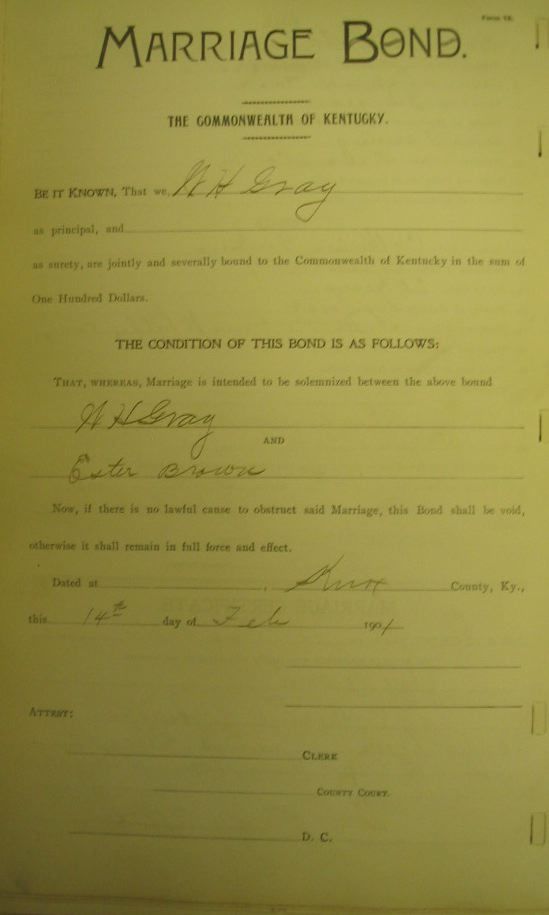 Form 12.
MARRIAGE BOND.
THE COMMONWEALTH OF KENTUCKY.
BE IT KNOWN, That we, W H Gray
as principal, and
as surety, are jointly and severally bound to the Commonwealth of Kentucky in the sum of
One Hundred Dollars.
THE CONDITION OF THIS BOND IS AS FOLLOWS:
THAT, WHEREAS, Marriage is intended to be solemnized between the above bound
W H Gray
AND
Ester Brown
Now, if there is no lawful cause to obstruct said Marriage, this Bond shall be void,
otherwise it shall remain in full force and effect.
Dated at , Knox County, Ky.,
this 14th day of Feb 1901
ATTEST:
CLERK
COUNTY COURT.
D. C.